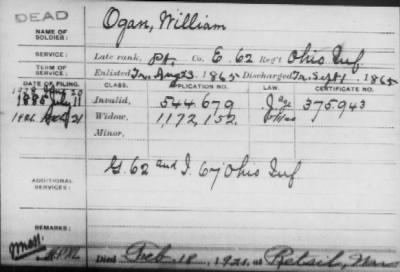 DEAD
NAME OF SOLDIER: Ogan, William
SERVICE: Late rank, Pt. Co. E. 62 Reg't Ohio Inf
TERM OF SERVICE: Enlisted Tr. Aug 3, 1865 Discharged Tr. Sept 1, 1865
DATE OF FILING. CLASS. APPLICATION NO. LAW. CERTIFICATE NO.
1885 July 11 Invalid, 544679 375.943
Widow, 1,172,152
Minor,
G. 62 and I. 67 Ohio Inf
ADDITIONAL SERVICES:
REMARKS:
Died Feb 18, 1921, at Retsil,